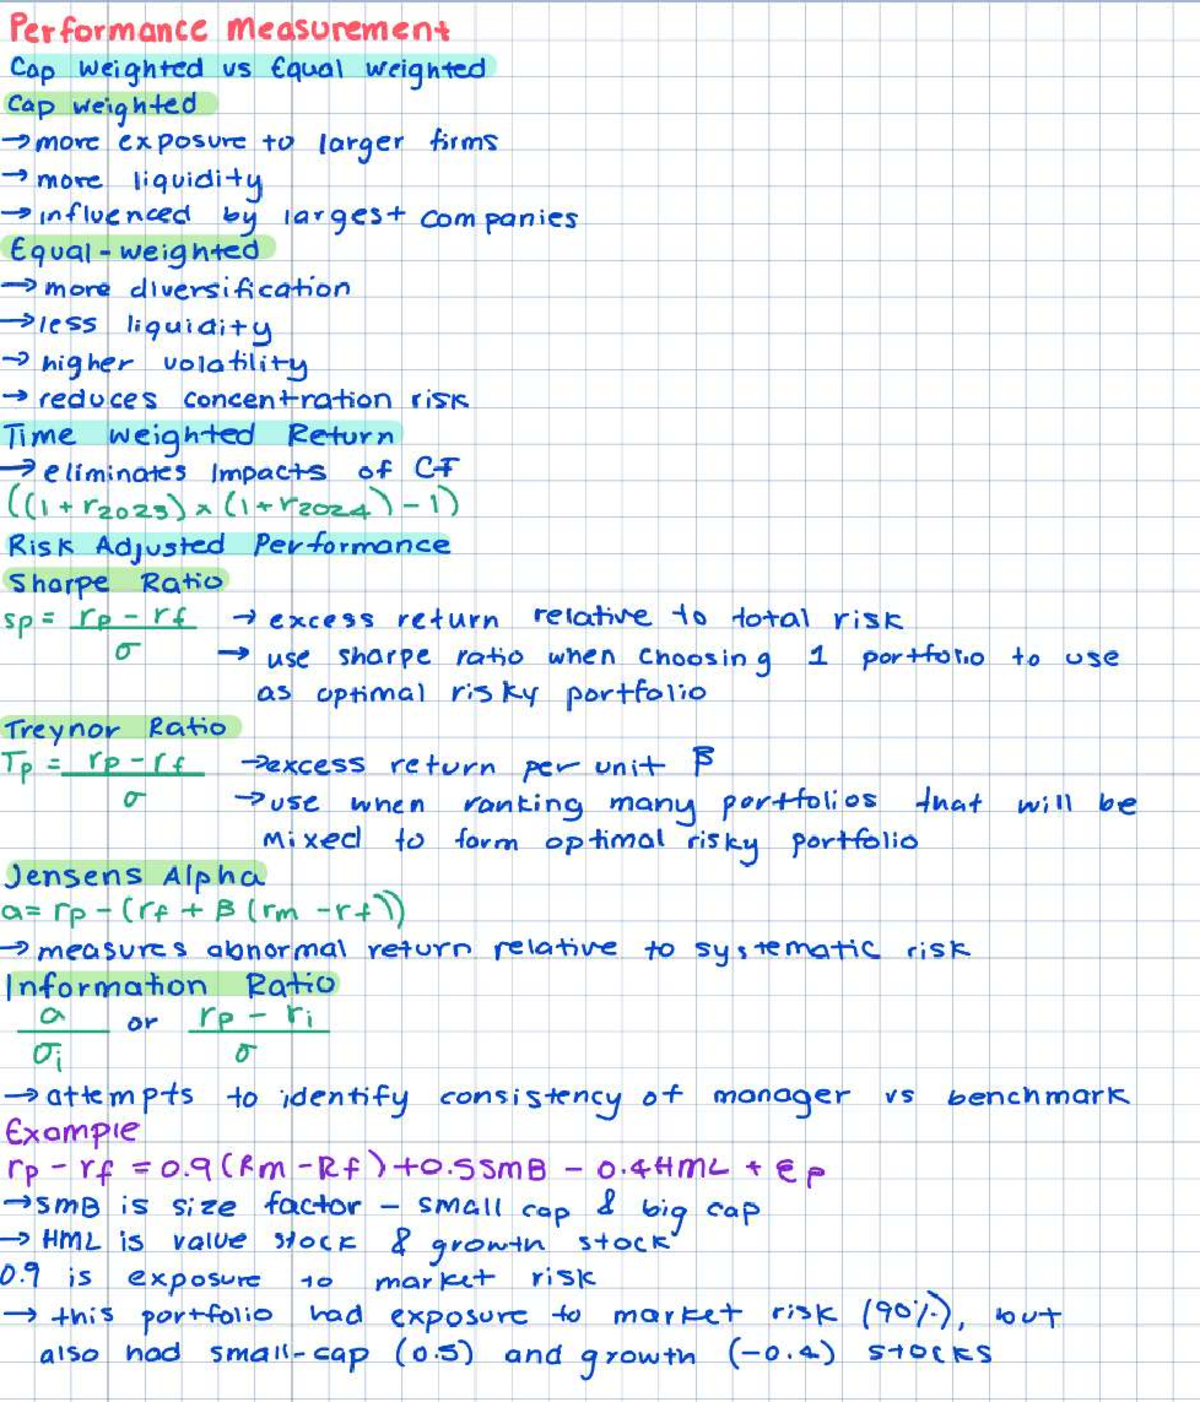 Performance Measurement
Cap Weighted vs Equal Weighted
Cap weighted
→ more exposure to larger firms
→ more liquidity
→ influenced by largest companies
Equal-weighted
→ more diversification
→ less liquidity
→ higher volatility
→ reduces concentration risk
Time Weighted Return
→ eliminates impacts of CF
((1 + r2023) × (1 + r2024) - 1)
Risk Adjusted Performance
Sharpe Ratio
sp = (rp - rf) / σ → excess return relative to total risk
→ use sharpe ratio when choosing 1 portfolio to use
as optimal risky portfolio
Treynor Ratio
Tp = (rp - rf) / σ → excess return per unit β
→ use when ranking many portfolios that will be
mixed to form optimal risky portfolio
Jensens Alpha
a = rp - (rf + β (rm - rf))
→ measures abnormal return relative to systematic risk
Information Ratio
a / σi or (rp - ri) / σ
→ attempts to identify consistency of manager vs benchmark
Example
rp - rf = 0.9 (Rm - Rf) + 0.5 SMB - 0.4 HML + ep
→ SMB is size factor - small cap & big cap
→ HML is value stock & growth stock
0.9 is exposure to market risk
→ this portfolio had exposure to market risk (90%), but
also had small-cap (0.5) and growth (-0.4) stocks